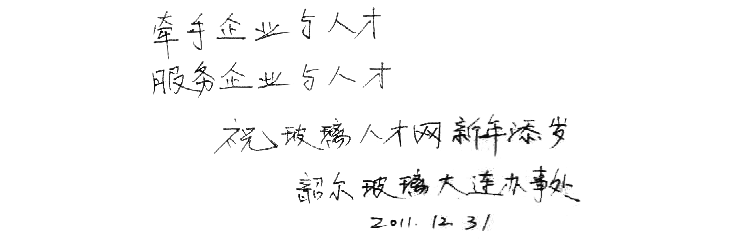 牵手企业与人才
服务企业与人才
祝玻璃人才网新年添岁
韶尔玻璃大连办事处
2011.12.31